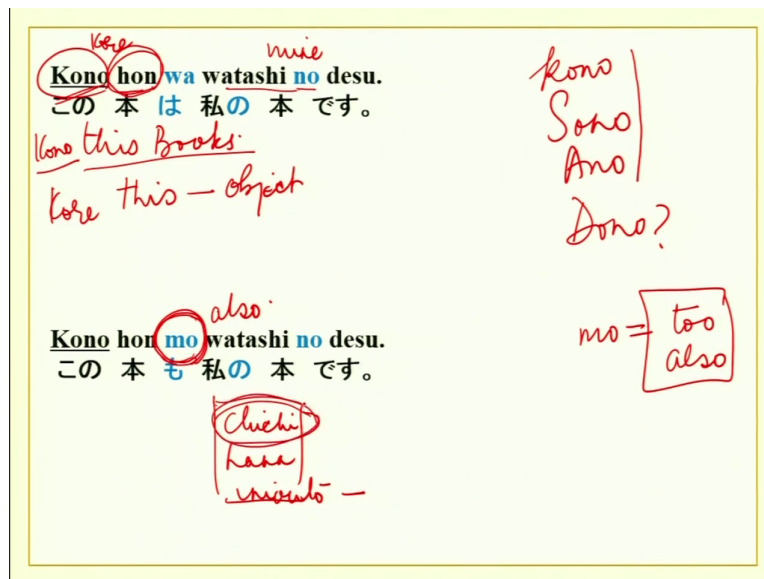 Kore mine
Kono hon wa watashi no desu.
この 本 は 私の 本 です。
Kono this Books.
Kore this — object
kono
Sono
Ano
Dono?
also.
Kono hon mo watashi no desu.
この 本 も 私の 本 です。
mo = too
also
Chichi
haha